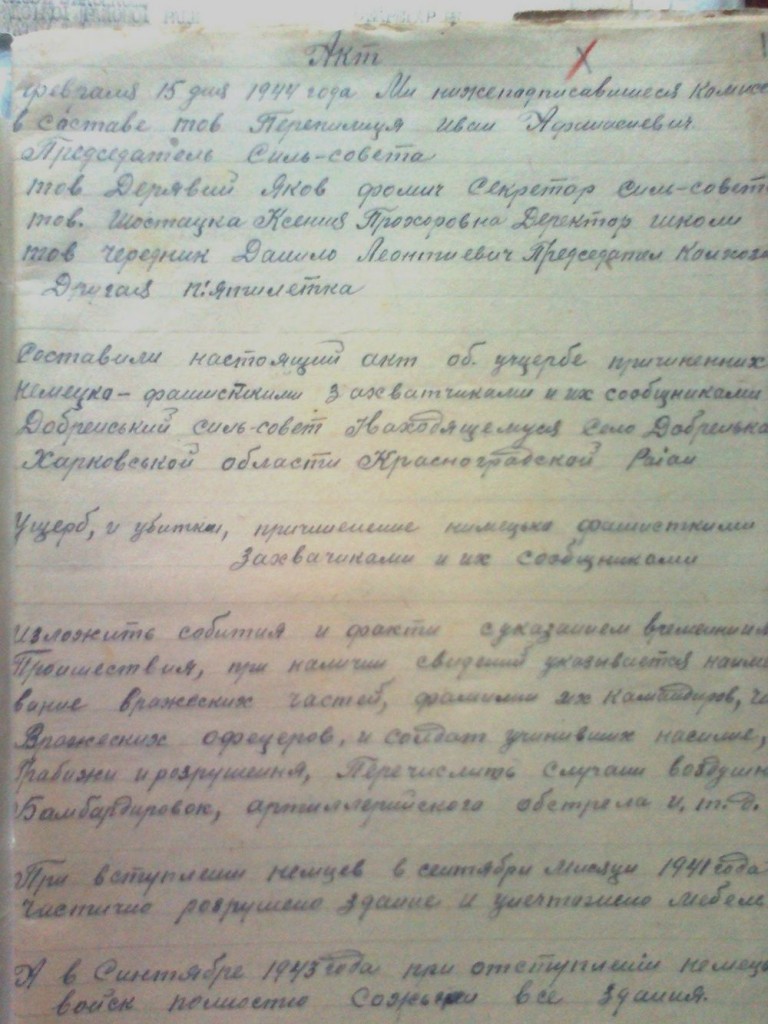 Акт
февраля 15 дня 1944 года Ми нижеподписавшиеся комисс
в составе тов Перепилиця Иван Афанасиевич
Председатель Силь-совета
тов Дерявий Яков фомич Секретор сим-совет
тов. Шостацка Ксения Прохоровна Деректор школи
тов чередник Данило Леонтиевич Председатил Колхоз
Другая п'ятилетка
Составили настоящий акт об. ущербе причиненних
немецко-фашисткими захватчиками и их сообщниками
Добренський силь-совет Находящемуся село Добренька
Харковськой области Красноградской Раіан
Ущерб, и убитки, причиненние нимецько фашисткими
захвачиками и их сообщниками
Изложить события и факти с указанием времении
Проишествия, при наличии сведений указывается наиме
вание вражеских частей, фамилии их командиров,
Вражеских офецеров, и солдат учинивших насилие,
Грабижи и розрушення, Перечислить случаи воздушн
Бамбардировок, артиллерийского обстрела и. т. д.
При вступлении немцев в сентябри Мисяци 1941 года
Частично розрушено здание и уничтожено мебель
А в Синтябре 1943 года при отступлении немець
войск полностю сожгли все здания.